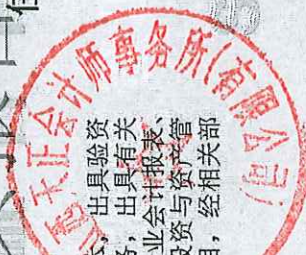 天正会计师事务所(有限公司)
出具验资
务，出具有关
业会计报表、
投资与资产管
经相关部